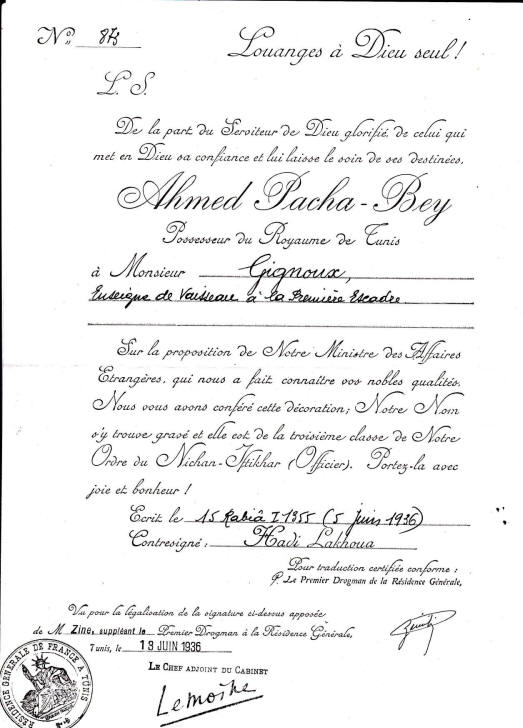 No 873
Louanges à Dieu seul!
L. S.
De la part du Serviteur de Dieu glorifié, de celui qui
met en Dieu sa confiance et lui laisse le soin de ses destinées,
Ahmed Pacha-Bey
Possesseur du Royaume de Tunis
à Monsieur Gignoux,
Enseigne de Vaisseau à la Première Escadre
Sur la proposition de Notre Ministre des Affaires
Etrangères, qui nous a fait connaître vos nobles qualités,
Nous vous avons conféré cette décoration; Notre Nom
s'y trouve gravé et elle est de la troisième classe de Notre
Ordre du Nichan-Iftikhar (Officier). Portez-la avec
joie et bonheur!
Ecrit le 15 Rabiâ I 1355 (5 Juin 1936)
Contresigné: Hadi Lakhoua
Pour traduction certifiée conforme:
P. Le Premier Drogman de la Résidence Générale,
Vu pour la légalisation de la signature ci-dessus apposée
de M Zine, suppléant le Premier Drogman à la Résidence Générale,
Tunis, le 13 JUIN 1936
LE CHEF ADJOINT DU CABINET
Lemoine
RESIDENCE GENERALE DE FRANCE A TUNIS